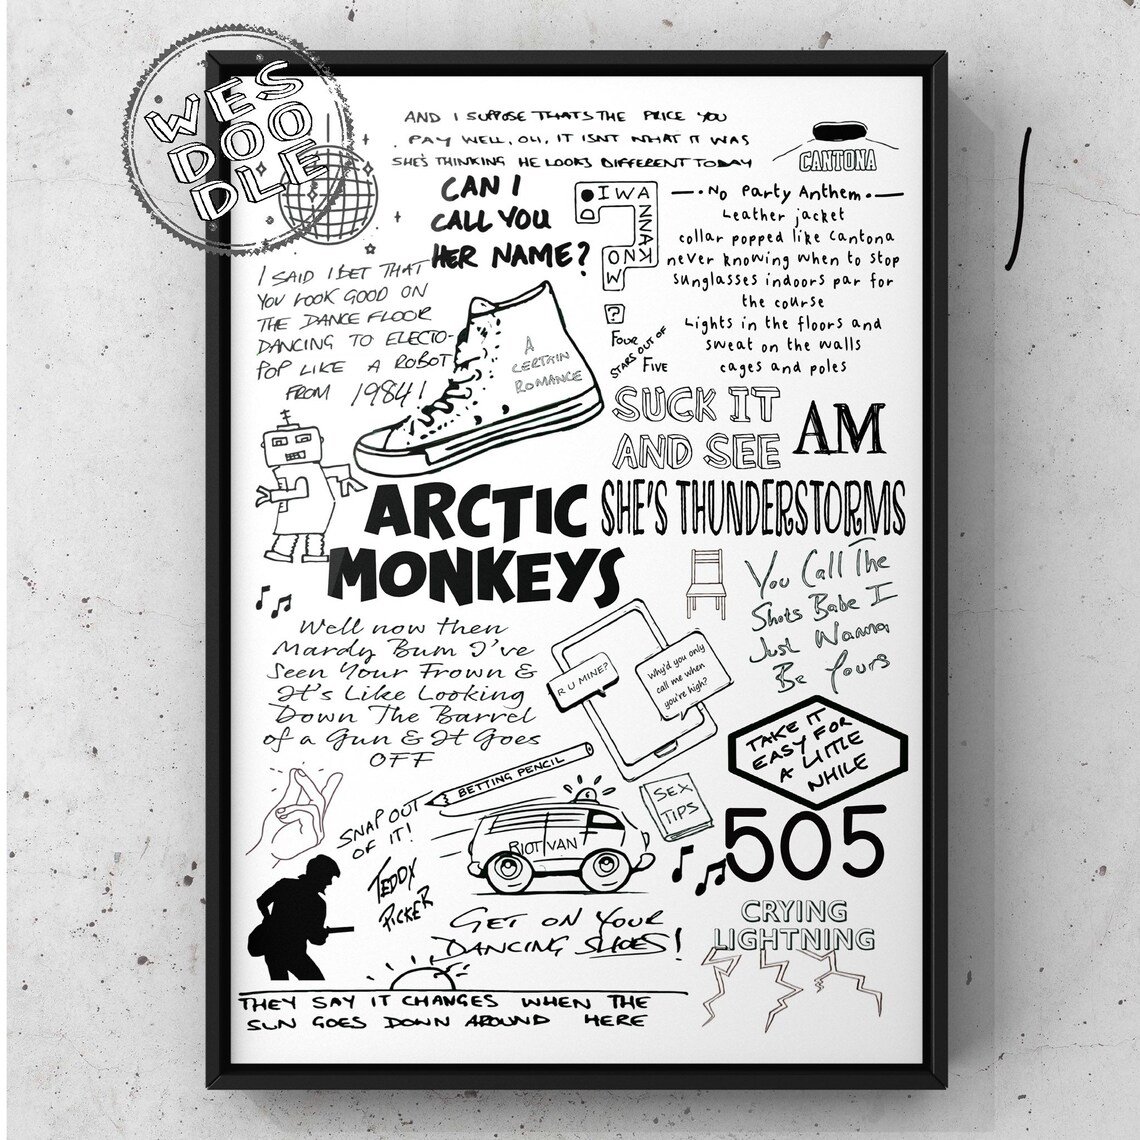 WES
DOO
DLE
AND I SUPPOSE THATS THE PRICE YOU
PAY WELL, OH, IT ISNT WHAT IT WAS
SHE'S THINKING HE LOOKS DIFFERENT TODAY
CANTONA
CAN I
CALL YOU
HER NAME?
DO I WANNA KNOW
?
No Party Anthem
Leather jacket
collar popped like Cantona
never knowing when to stop
Sunglasses indoors par for
the course
Lights in the floors and
sweat on the walls
cages and poles
I SAID I BET THAT
YOU LOOK GOOD ON
THE DANCE FLOOR
DANCING TO ELECTO-
POP LIKE A ROBOT
FROM 1984!
A
CERTAIN
ROMANCE
FOUR
STARS OUT OF
FIVE
SUCK IT
AND SEE
AM
ARCTIC
MONKEYS
SHE'S THUNDERSTORMS
You Call The
Shots Babe I
Just Wanna
Be Yours
Well now then
Mardy Bum I've
Seen Your Frown &
It's Like Looking
Down The Barrel
of a Gun & It Goes
OFF
R U MINE?
Why'd you only
call me when
you're high?
TAKE IT
EASY FOR
A LITTLE
WHILE
BETTING PENCIL
SNAP OUT
OF IT!
SEX
TIPS
RIOT VAN
505
TEDDY
PICKER
GET ON YOUR
DANCING SHOES!
CRYING
LIGHTNING
THEY SAY IT CHANGES WHEN THE
SUN GOES DOWN AROUND HERE